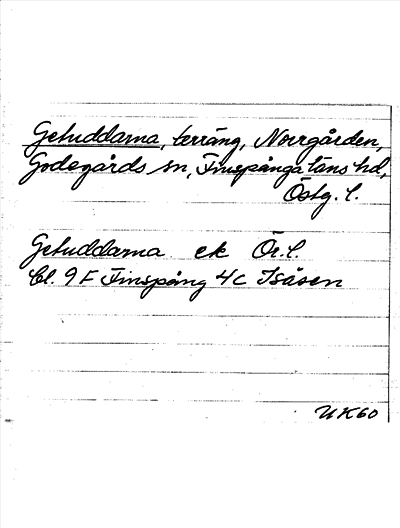 Getuddarna, terräng, Norrgården,
Godegårds sn, Finspånga läns hd,
Östg. l.
Getuddarna ek Ör. l.
bl. 9 F Finspång 4 c Isåsen
UK60